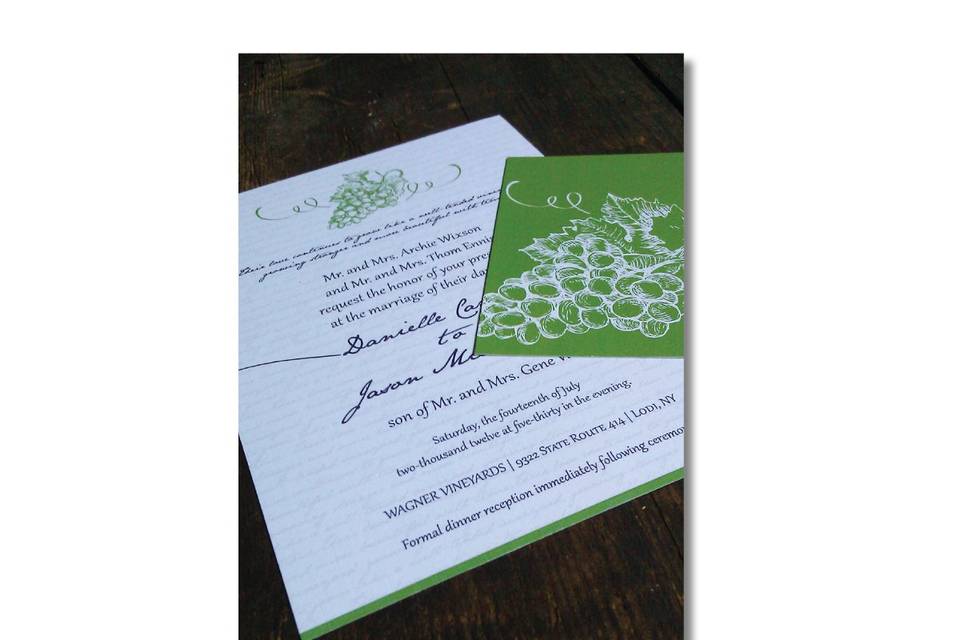 their love continues to grow like a well-tended
growing stronger and more beautiful with
Mr. and Mrs. Archie Wixson
and Mr. and Mrs. Thom Ennis
request the honor of your pres
at the marriage of their da
Danielle Ca
to
Jason M
son of Mr. and Mrs. Gene
Saturday, the fourteenth of July
two-thousand twelve at five-thirty in the evening.
WAGNER VINEYARDS | 9322 STATE ROUTE 414 | LODI, NY
Formal dinner reception immediately following ceremo